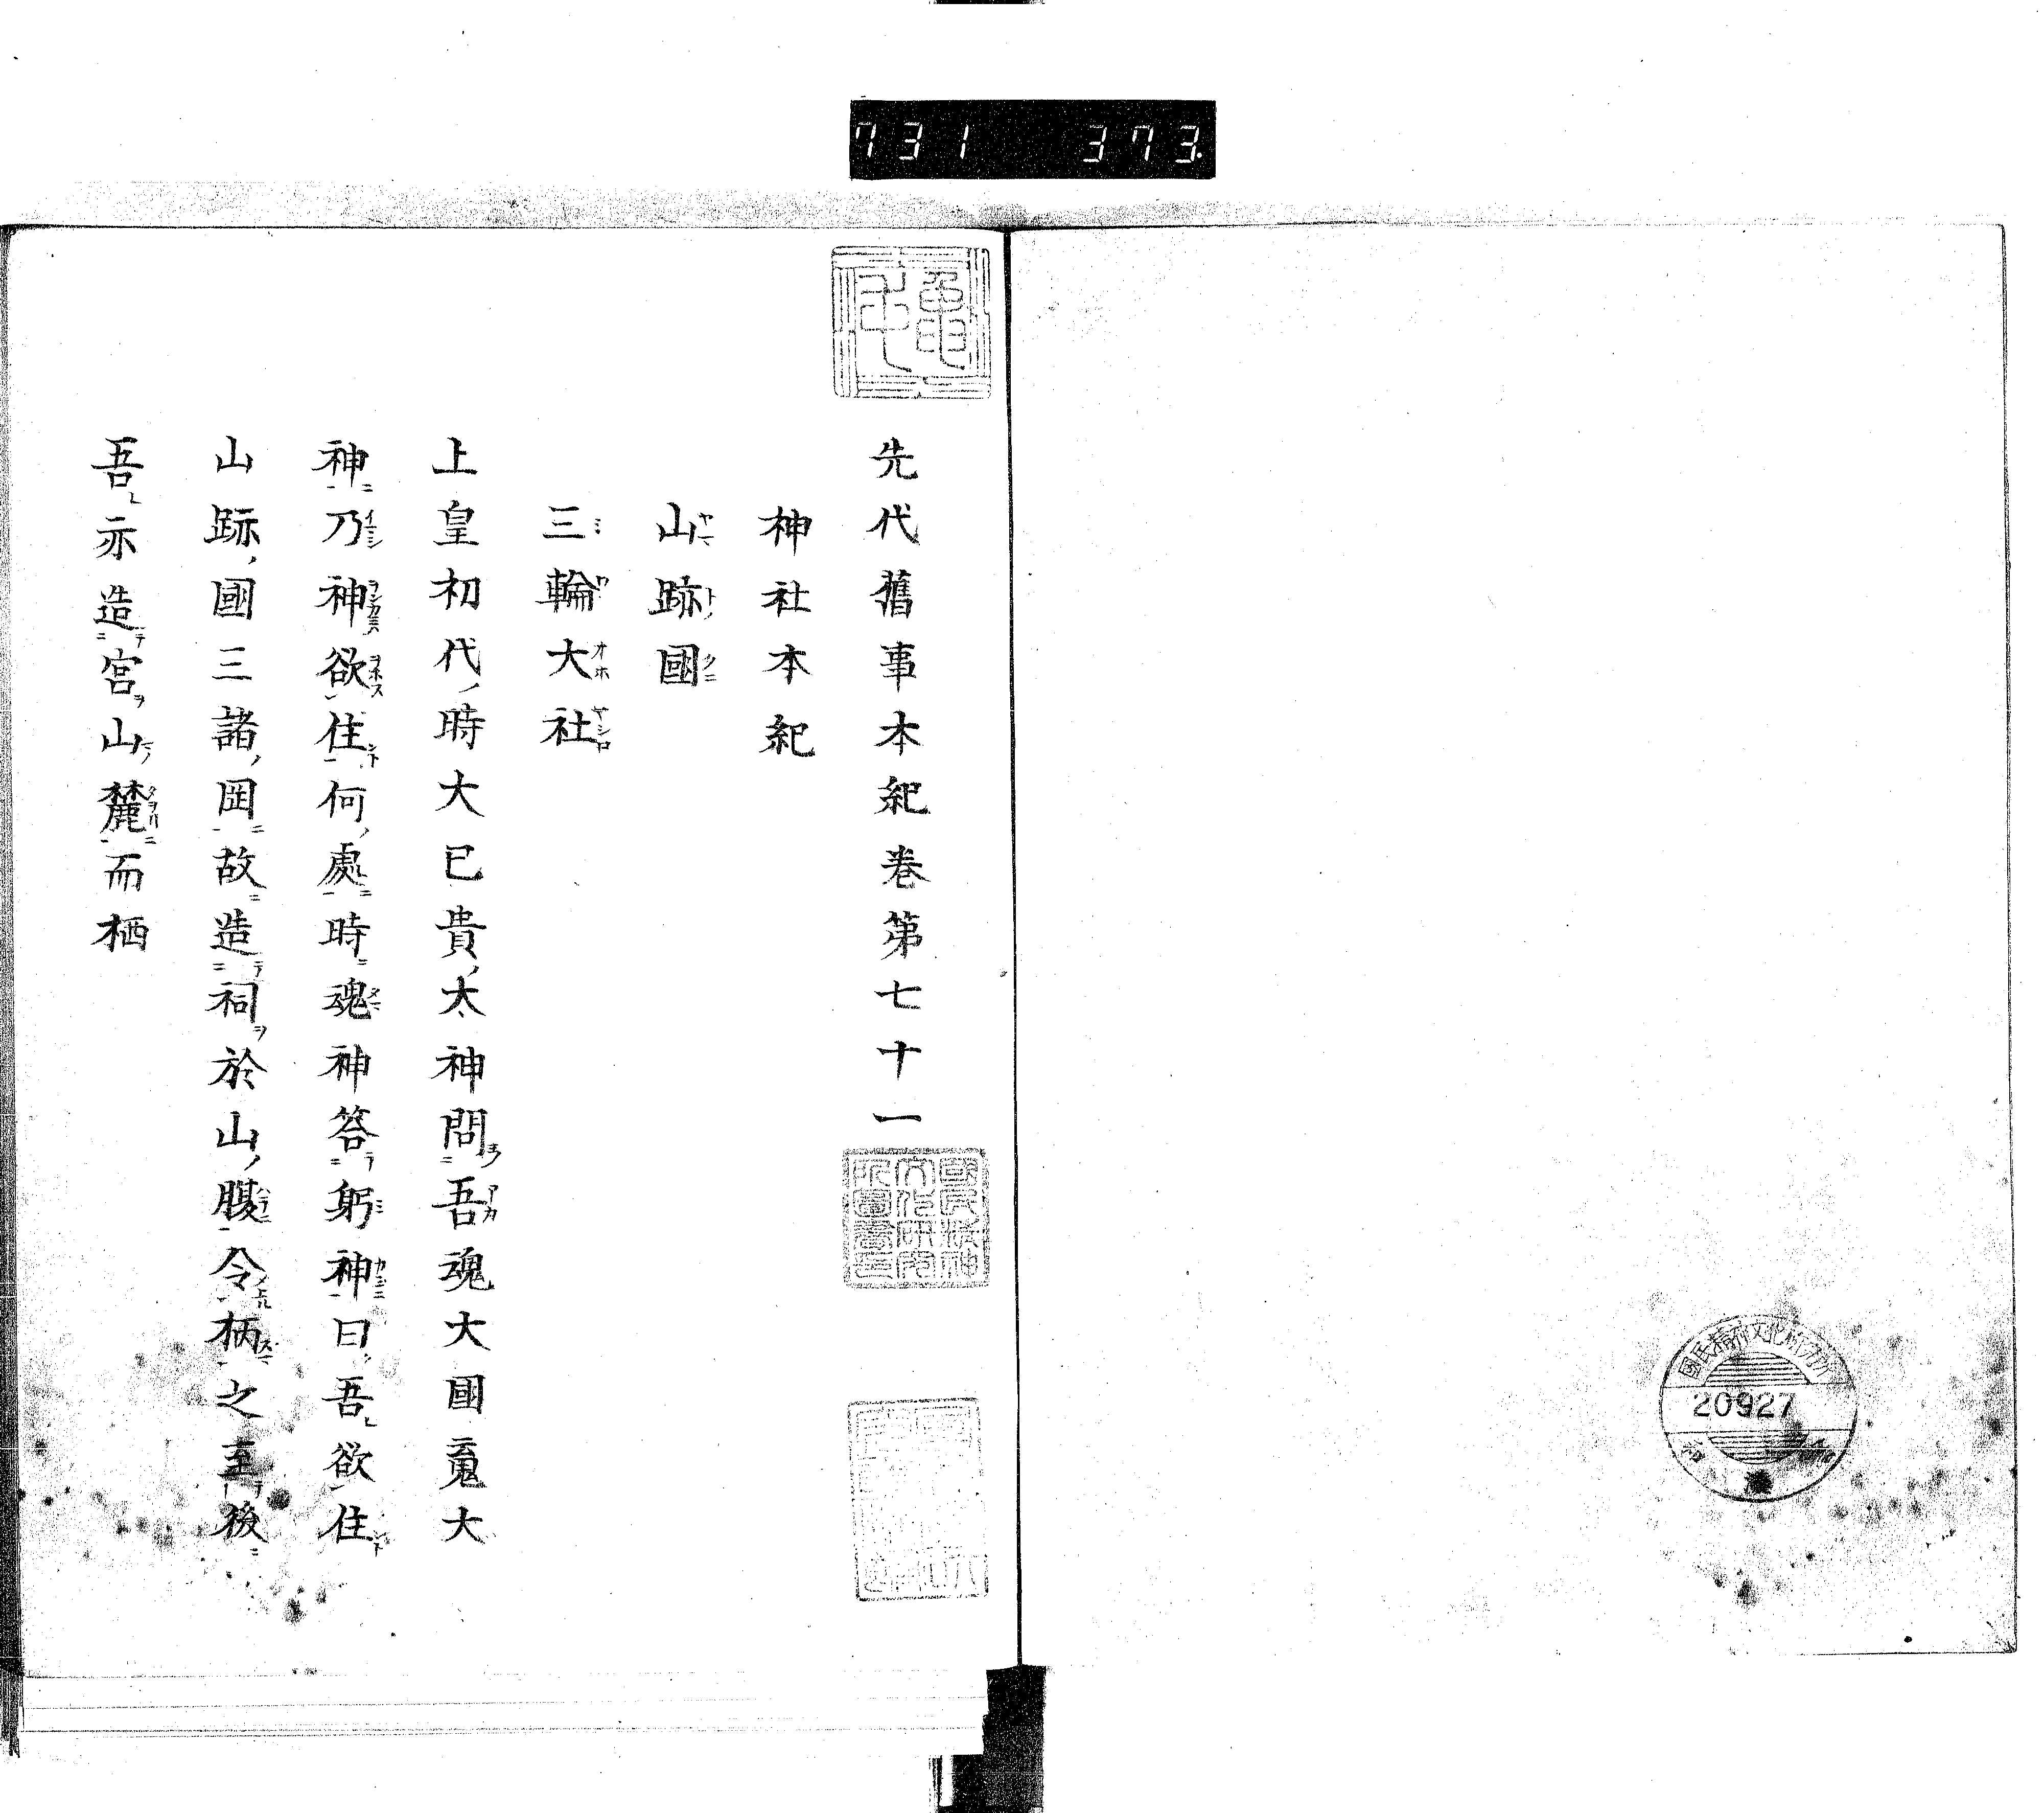 731 373
先代舊事本紀卷第七十一
神社本紀
山跡國
三輪大社
上皇初代時大已貴太神問吾魂大國䰟大
神乃神欲住何處時魂神答躬神曰吾欲住
山跡國三諸岡故造祠於山腹令栖之至後
吾亦造宮山麓而栖
國民精神
文化研究
所圖書印
國民精神文化研究所
20927